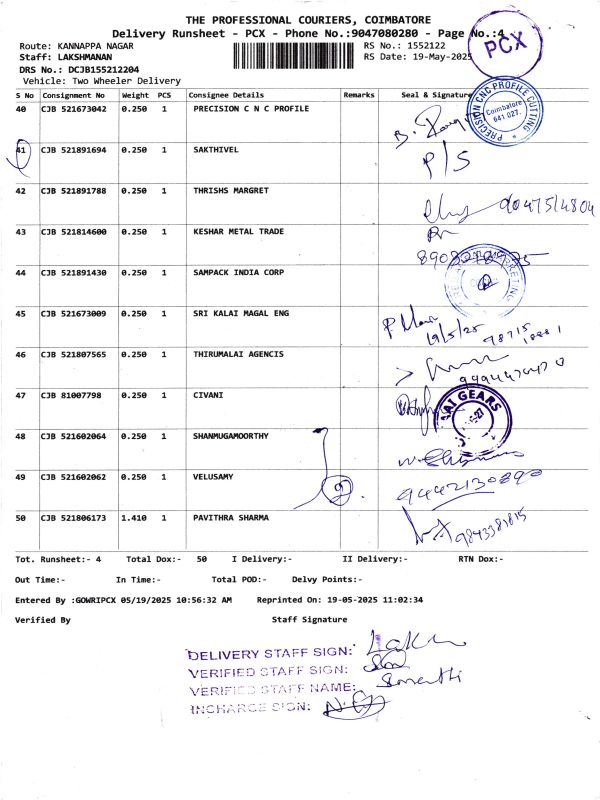 THE PROFESSIONAL COURIERS, COIMBATORE
Delivery Runsheet - PCX - Phone No.:9047080280 - Page No.:4
Route: KANNAPPA NAGAR RS No.: 1552122
Staff: LAKSHMANAN RS Date: 19-May-2025
DRS No.: DCJB155212204
Vehicle: Two Wheeler Delivery
PCX
S No Consignment No Weight PCS Consignee Details Remarks Seal & Signature
40 CJB 521673042 0.250 1 PRECISION C N C PROFILE
PRECISION CNC PROFILE CUTTING
Coimbatore
641 027.
41 CJB 521891694 0.250 1 SAKTHIVEL P/S
42 CJB 521891788 0.250 1 THRISHS MARGRET 9047514804
43 CJB 521814600 0.250 1 KESHAR METAL TRADE
44 CJB 521891430 0.250 1 SAMPACK INDIA CORP
45 CJB 521673009 0.250 1 SRI KALAI MAGAL ENG 19/5/25
46 CJB 521807565 0.250 1 THIRUMALAI AGENCIS
47 CJB 81007798 0.250 1 CIVANI
GEARS
48 CJB 521602064 0.250 1 SHANMUGAMOORTHY
49 CJB 521602062 0.250 1 VELUSAMY 9442130890
50 CJB 521806173 1.410 1 PAVITHRA SHARMA 9843381815
Tot. Runsheet:- 4 Total Dox:- 50 I Delivery:- II Delivery:- RTN Dox:-
Out Time:- In Time:- Total POD:- Delvy Points:-
Entered By :GOWRIPCX 05/19/2025 10:56:32 AM Reprinted On: 19-05-2025 11:02:34
Verified By Staff Signature
DELIVERY STAFF SIGN:
VERIFIED STAFF SIGN:
VERIFIED STAFF NAME:
INCHARGE SIGN: